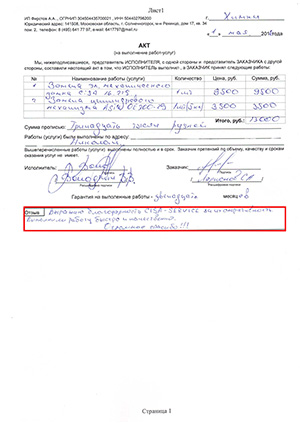 Лист1
ИП Фирсов А.А., ОГРНИП 304504435700021, ИНН 504402706200
Юридический адрес: 141508, Московская область, г. Солнечногорск, ул. Рязанца, дом 17, кв. 34
тел. 8 (495) 641 77 97, e-mail: 6417797@mail.ru
г. Химки
1 мая 201 г
АКТ
(на выполнение работ/услуг)
Мы, нижеподписавшиеся, представитель ИСПОЛНИТЕЛЯ, с одной стороны и представитель ЗАКАЗЧИКА с другой
стороны, составили настоящий акт в том, что ИСПОЛНИТЕЛЬ выполнил, а ЗАКАЗЧИК принял следующие работы:
№ Наименование работы (услуги) Количество Цена, руб. Сумма, руб.
1 Замена эл. механического
замка CISA 1 шт 9500 9500
2 Замена цилиндрового
механизма 3500 3500
Итого, руб.: 13000
Сумма прописью: Тринадцать тысяч рублей
Работы (услуги) были выполнены по адресу:
Вышеперечисленные работы (услуги) выполнены полностью и в срок. Заказчик претензий по объему, качеству и срокам
оказания услуг не имеет.
Исполнитель: Заказчик:
Подпись
Расшифровка подписи
Гарантия на выполненные работы - двенадцать месяцев
Отзыв Выражаю благодарность CISA-SERVICE за
выполнили работу быстро и качественно.
Огромное спасибо!!!
Страница 1